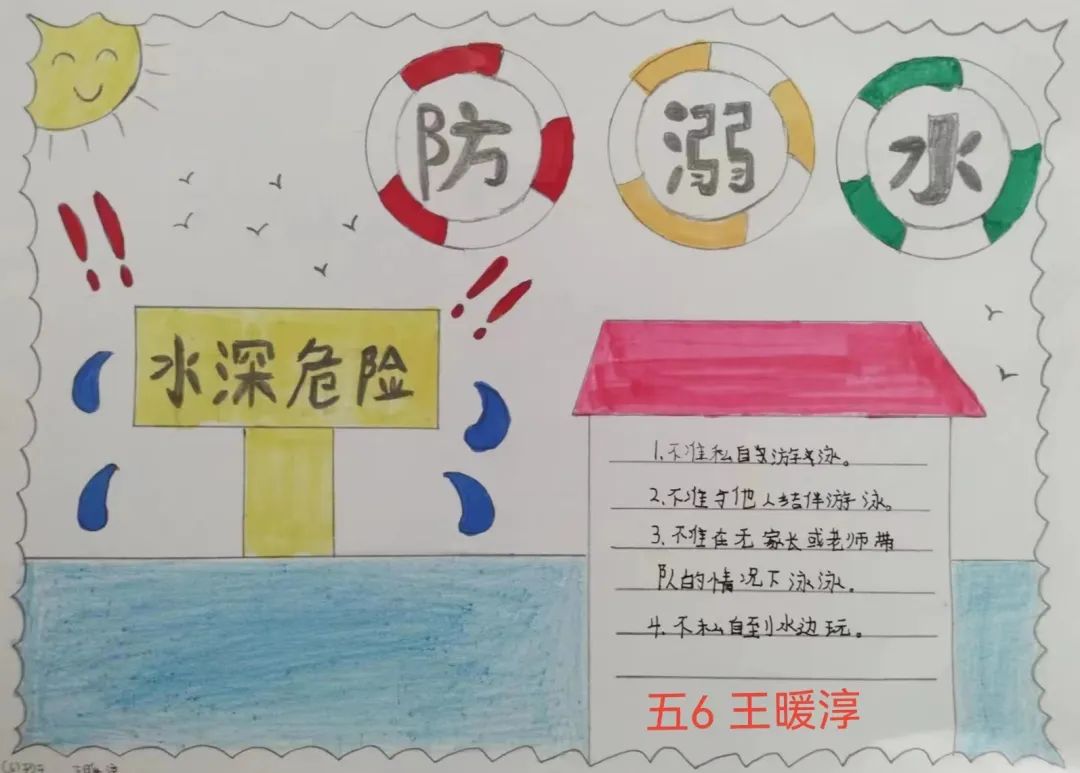 防溺水
水深危险
1.不准私自游泳。
2.不准与他人结伴游泳。
3.不准在无家长或老师带
队的情况下泳泳。
4.不私自到水边玩。
五6 王暖淳